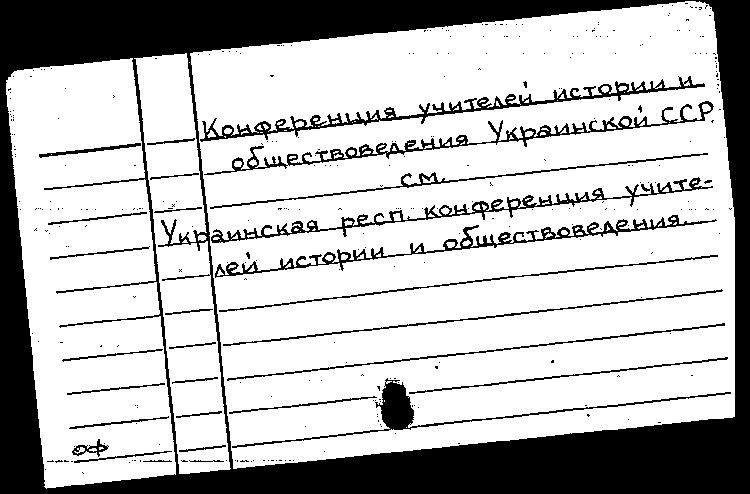 Конференция учителей истории и
обществоведения Украинской ССР
см.
Украинская респ. конференция учите-
лей истории и обществоведения.
оф